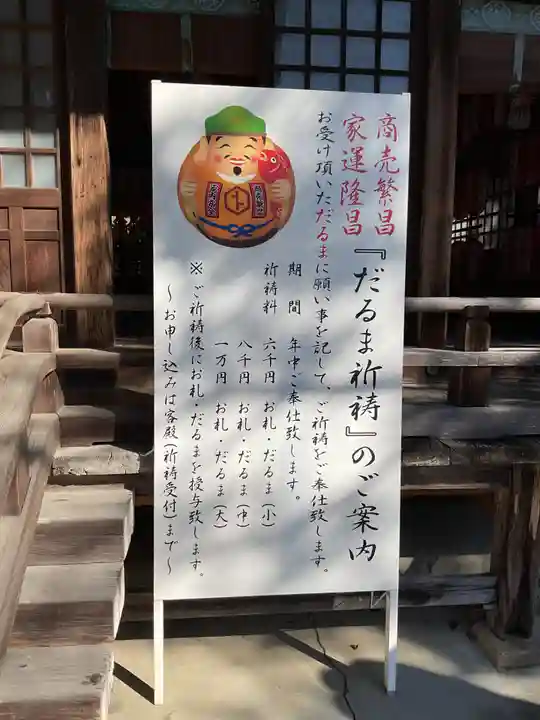 商売繁昌
家運隆昌
『だるま祈祷』のご案内
お受け頂いただるまに願い事を記して、ご祈祷をご奉仕致します。
期間　年中ご奉仕致します。
祈祷料　六千円　お札・だるま（小）
八千円　お札・だるま（中）
一万円　お札・だるま（大）
※ご祈祷後にお札・だるまを授与致します。
～お申し込みは客殿（祈祷受付）まで～